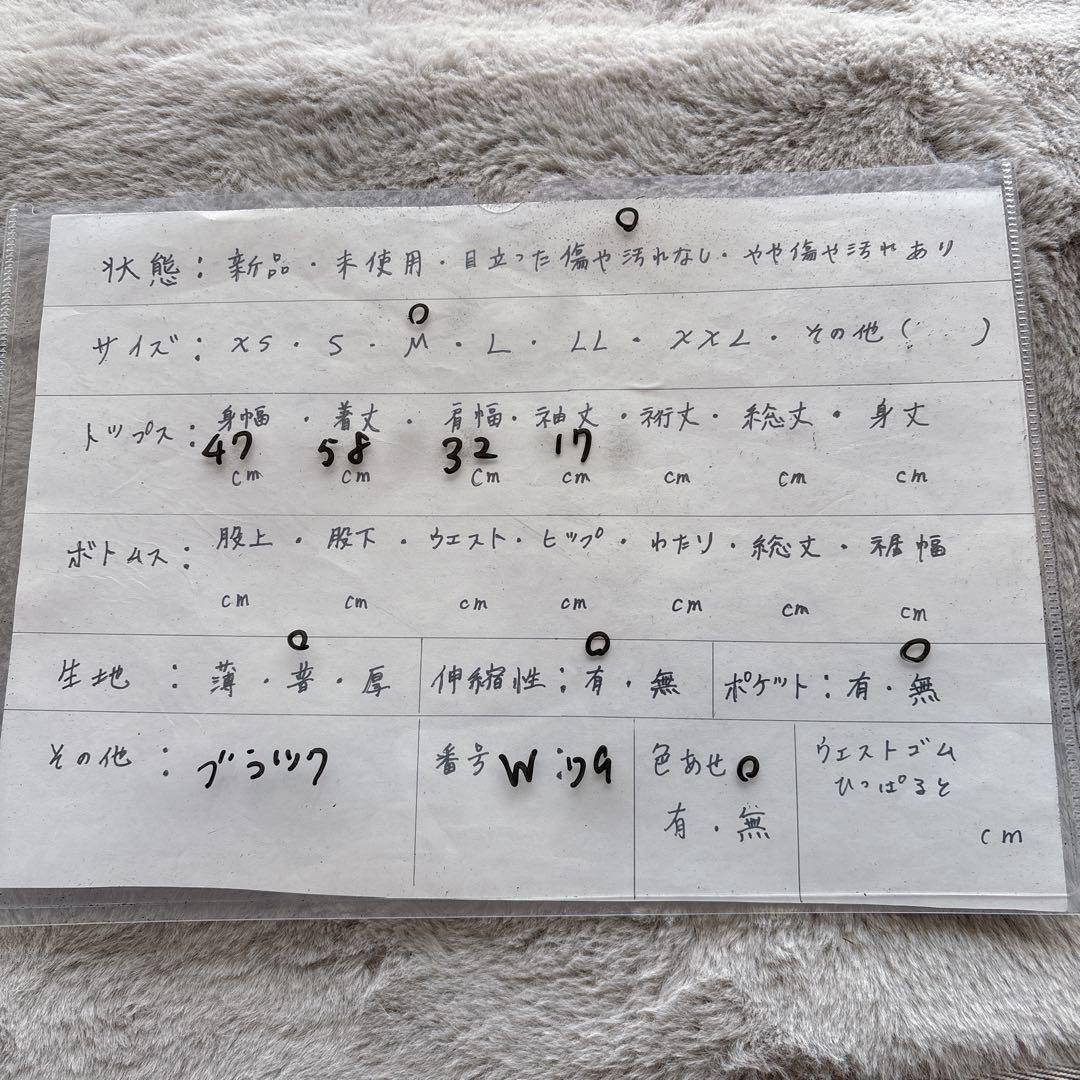 状態：新品・未使用・目立った傷や汚れなし・やや傷や汚れあり
サイズ：XS・S・M・L・LL・XXL・その他（　　）
トップス：身幅・着丈・肩幅・袖丈・裄丈・総丈・身丈
47 58 32 17
cm cm cm cm cm cm cm
ボトムス：股上・股下・ウエスト・ヒップ・わたり・総丈・裾幅
cm cm cm cm cm cm cm
生地：薄・普・厚
伸縮性：有・無
ポケット：有・無
その他：ブラック
番号 W
色あせ
有・無
ウエストゴム
ひっぱると
cm